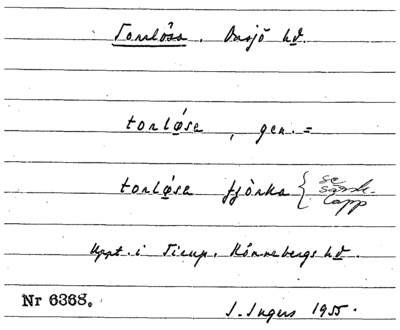 Torrlösa. Onsjö hd.
torløsa, gen. =
torløsa fjòrka { se särsk. lapp
Uppt. i Tirup. Rönnebergs hd.
Nr 6368.
I. Ingers 1955.